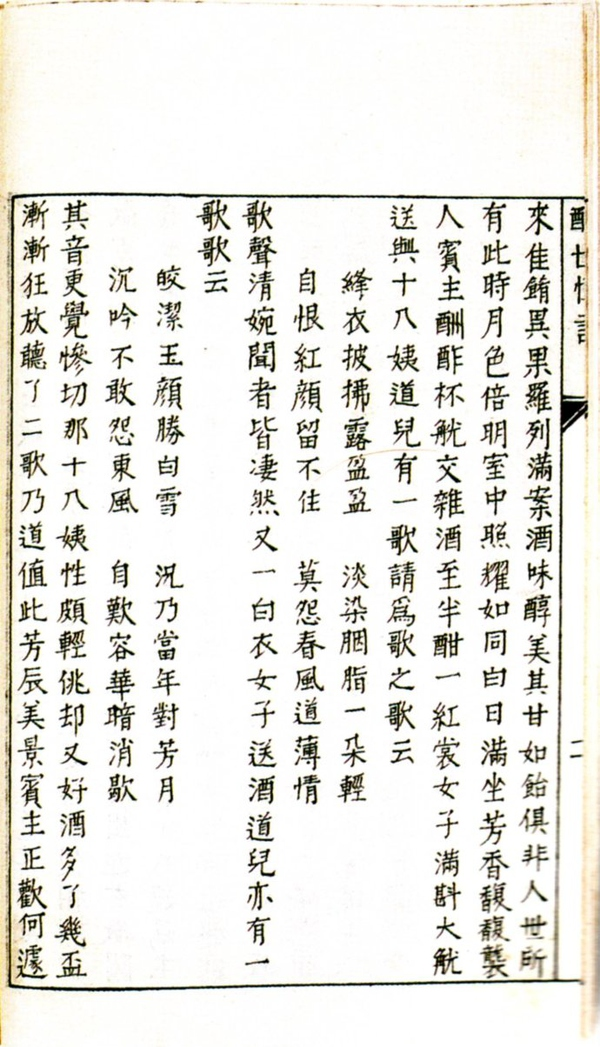 二
來佳餚異果羅列滿案酒味醇美其甘如飴俱非人世所
有此時月色倍明室中照耀如同白日滿坐芳香馥馥襲
人賓主酬酢杯觥交雜酒至半酣一紅裳女子滿斟大觥
送與十八姨道兒有一歌請爲歌之歌云
絳衣披拂露盈盈　淡染胭脂一朵輕
自恨紅顏留不住　莫怨春風道薄情
歌聲清婉聞者皆淒然又一白衣女子送酒道兒亦有一
歌歌云
皎潔玉顏勝白雪　況乃當年對芳月
沉吟不敢怨東風　自歎容華暗消歇
其音更覺慘切那十八姨性頗輕佻却又好酒多了幾盃
漸漸狂放聽了二歌乃道值此芳辰美景賓主正歡何遽